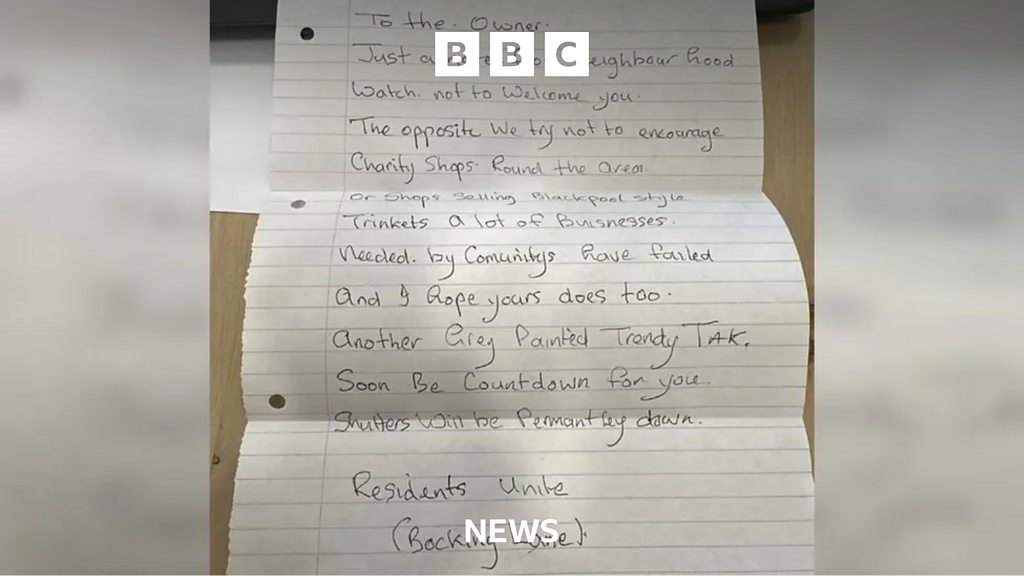 To the. Owner.
BBC
Just a eighbour hood
Watch. not to Welcome you.
The opposite We try not to encourage
Charity Shops. Round the area.
or Shops Selling Blackpool Style
Trinkets a lot of Buisnesses.
Needed. by Comunitys have failed
And I hope yours does too.
Another Grey Painted Trendy TAK.
Soon Be Countdown for you.
Shutters Will be Permantley down.
Residents Unite
NEWS
(Bocking